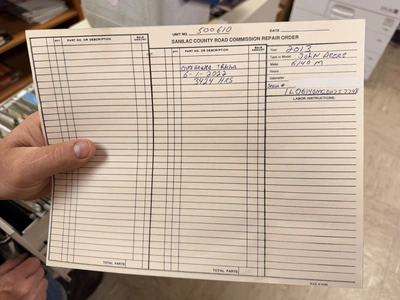 UNIT NO. 500610 DATE
SANILAC COUNTY ROAD COMMISSION REPAIR ORDER
QTY. PART NO. OR DESCRIPTION
QTY. PART NO. OR DESCRIPTION
Year 2013
Type or Model John Deere
Make 6140 M
Hours
Odometer
Serial #
LABOR INSTRUCTIONS:
6-1-2022
3424 HRS
TOTAL PARTS
TOTAL PARTS